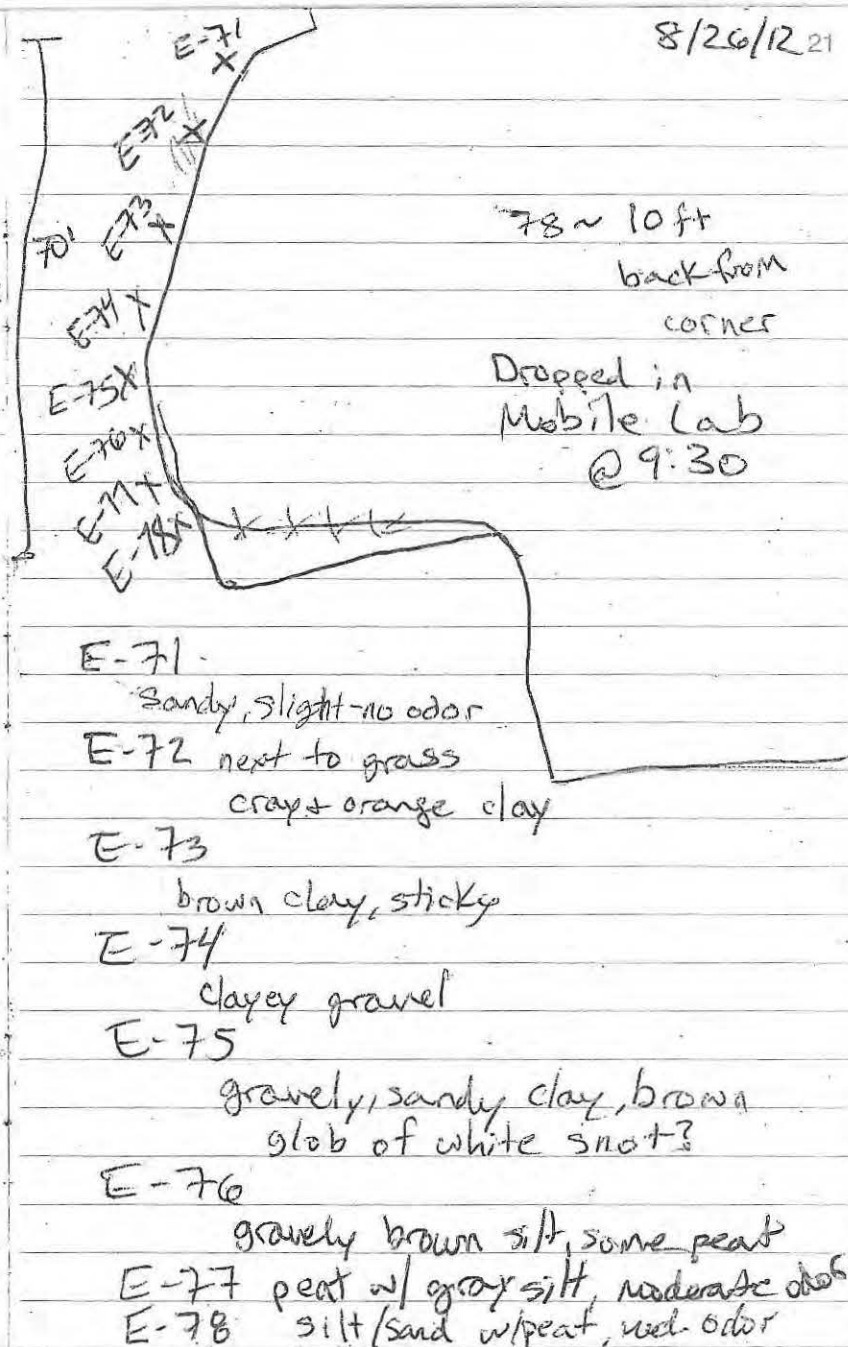 8/26/12 21
E-71
E-72
E-73
70'
E-74
E-75
E-76
E-77
E-78
78 ~ 10 ft
back from
corner
Dropped in
Mobile Lab
@ 9:30
E-71
Sandy, slight-no odor
E-72 next to grass
gray + orange clay
E-73
brown clay, sticky
E-74
clayey gravel
E-75
gravely, sandy clay, brown
glob of white snot?
E-76
gravely brown silt, some peat
E-77 peat w/ gray silt, moderate odor
E-78 silt/sand w/peat, mod. odor